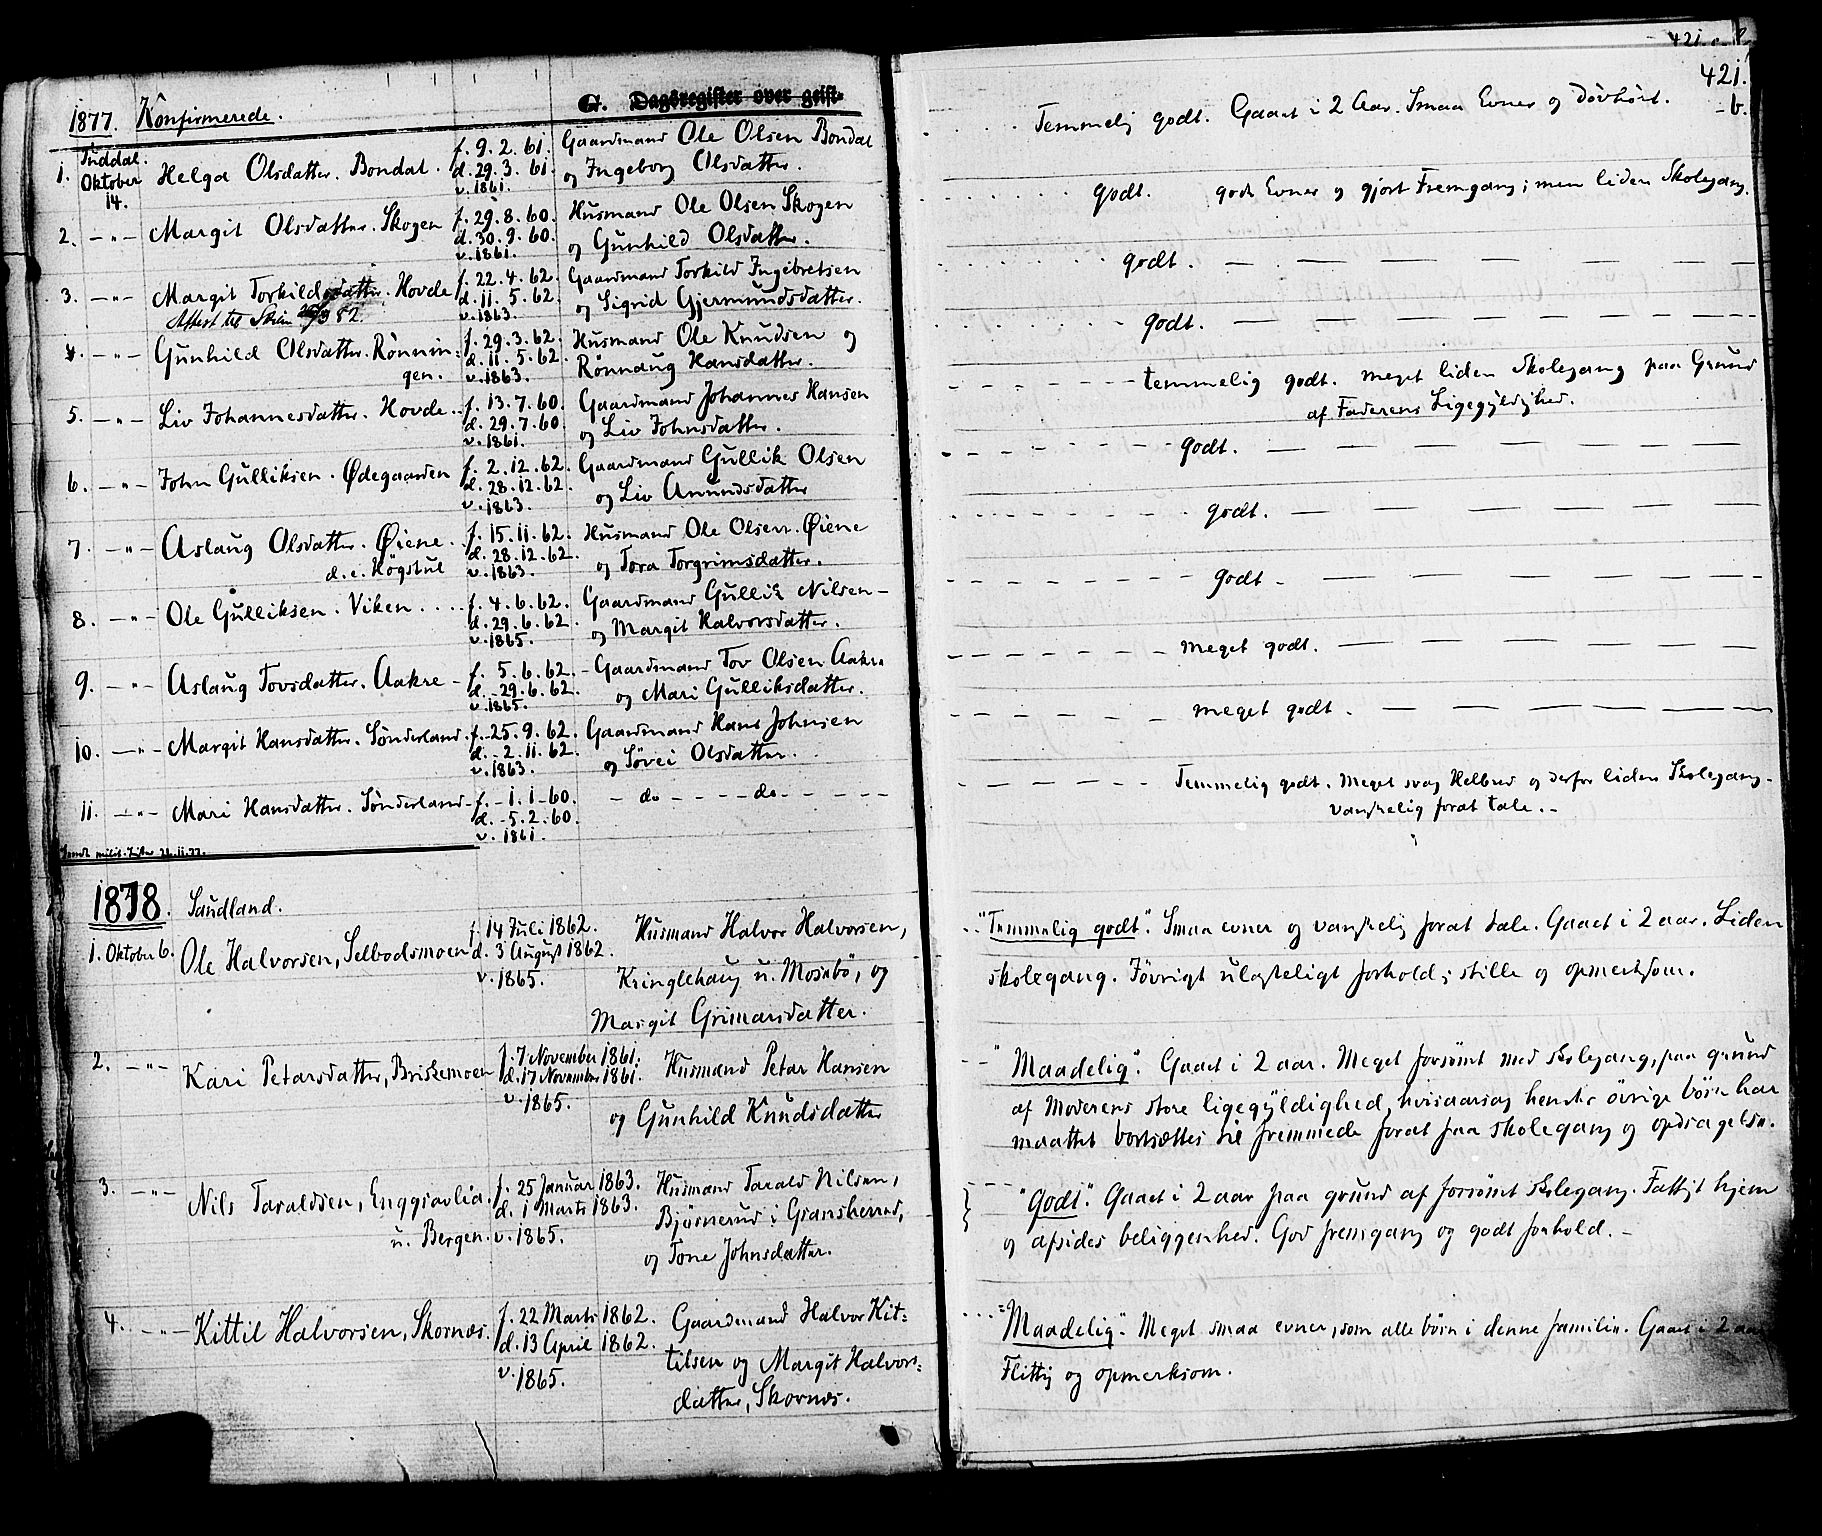 G. Dagsregister over geist-
1877. Konfirmerede.
1. Tuddal. Oktober 14. Helga Olsdatter. Bondal. f. 9.2.61. d. 29.3.61. v. 1861. Gaardmand Ole Olsen Bondal
og Ingeborg Olsdatter.
2. —"— Margit Olsdatter. Skogen f. 29.8.60. d. 30.9.60. v. 1861. Husmand Ole Olsen Skogen
og Gunhild Olsdatter.
3. —"— Margit Torkildsdatter. Hovde f. 22.4.62. d. 11.5.62. v. 1863. Gaardmand Torkild Ingebretsen
Attest til Skien og Sigrid Gjermundsdatter.
4. —"— Gunhild Olsdatter. Rönnin= f. 29.3.62. d. 11.5.62. v. 1863. Husmand Ole Knudsen og
gen. Rönnaug Hansdatter.
5. —"— Liv Johannesdatter. Hovde.. f. 13.7.60. d. 29.7.60. v. 1861. Gaardmand Johannes Hansen
og Liv Johnsdatter.
6. —"— John Gulliksen. Ødegaarden f. 2.12.62. d. 28.12.62. v. 1863. Gaardmand Gullik Olsen
og Liv Anundsdatter
7. —"— Aslaug Olsdatter. Øiene. f. 15.11.62. d. 28.12.62. v. 1863. Husmand Ole Olsen. Øiene
d.e. Högstul og Tora Torgrimsdatter.
8. —"— Ole Gulliksen. Viken.... f. 4.6.62. d. 29.6.62. v. 1865. Gaardmand Gullik Nilsen—
og Margit Halvorsdatter.
9. —"— Aslaug Tovsdatter. Aakre — f. 5.6.62. d. 29.6.62. v. 1865. Gaardmand Tov Olsen Aakre
og Mari Gulliksdatter.
10. —"— Margit Hansdatter. Sønderland. f. 25.9.62. d. 2.11.62. v. 1863. Gaardmand Hans Johnsen
og Sövei Olsdatter.
11. —"— Mari Hansdatter. Sønderland— f. 1.1-60. d. 5.2.60. v. 1861. — do — — — do — — —
Sendt milit. Lister 26.11.77.
1878. Saudland.
1. Oktober 6. Ole Halvorsen, Selbodsmoen f. 14 Juli 1862. d. 3 August 1862. v. 1865. Husmand Halvor Halvorsen,
Kringlehaug u. Mosebö, og
Margit Grimarsdatter.
2. —"— Kari Petarsdatter, Briskemoen f. 7 November 1861. d. 17 November 1861. v. 1865. Husmand Petar Hansen
og Gunhild Knudsdatter
3. —"— Nils Taraldsen, Enggravlia. f. 25 Januar 1863. d. 1 Marts 1863. v. 1865. Husmand Tarald Nilsen,
u. Bergen. Bjørnerud i Gransherred,
og Tone Johnsdatter.
4. —"— Kittil Halvorsen, Skornæs. f. 22 Marts 1862. d. 13 April 1862. v. 1865. Gaardmand Halvor Kit=
tilsen og Margit Halvors=
datter, Skornæs.
421.
-b.
Temmelig godt. Gaaet i 2 Aar. Smaa Evner og døvhørt.
godt. gode Evner og gjort Fremgang; men liden Skolegang.
godt. — — — — — —
godt. — — — — — —
temmelig godt. meget liden Skolegang paa Grund
af Faderens Ligegyldighed.
godt. — — — — — —
godt. — — — — — —
godt — — — — — —
meget godt. — — — — — —
meget godt. — — — — — —
Temmelig godt. Meget svag Helbred og derfor liden Skolegang—
vanskelig forat tale.—
"Temmelig godt". Smaa evner og vanskelig forat tale. Gaaet i 2 aar. Liden
skolegang. Iövrigt ulasteligt forhold; stille og opmerksom.
"Maadelig". Gaaet i 2 aar. Meget forsömt med skolegang, paa grund
af Moderens store ligegyldighed, hvisaarsag hendes övrige börn har
maattet bortsættes til fremmede forat faa skolegang og opdragelse.
"Godt". Gaaet i 2 aar paa grund af forsömt skolegang. Fattigt hjem
og afsides beliggenhed. God fremgang og godt forhold.—
"Maadelig". Meget smaa evner, som alle börn i denne familie. Gaaet i 2 aar
Flittig og opmerksom.